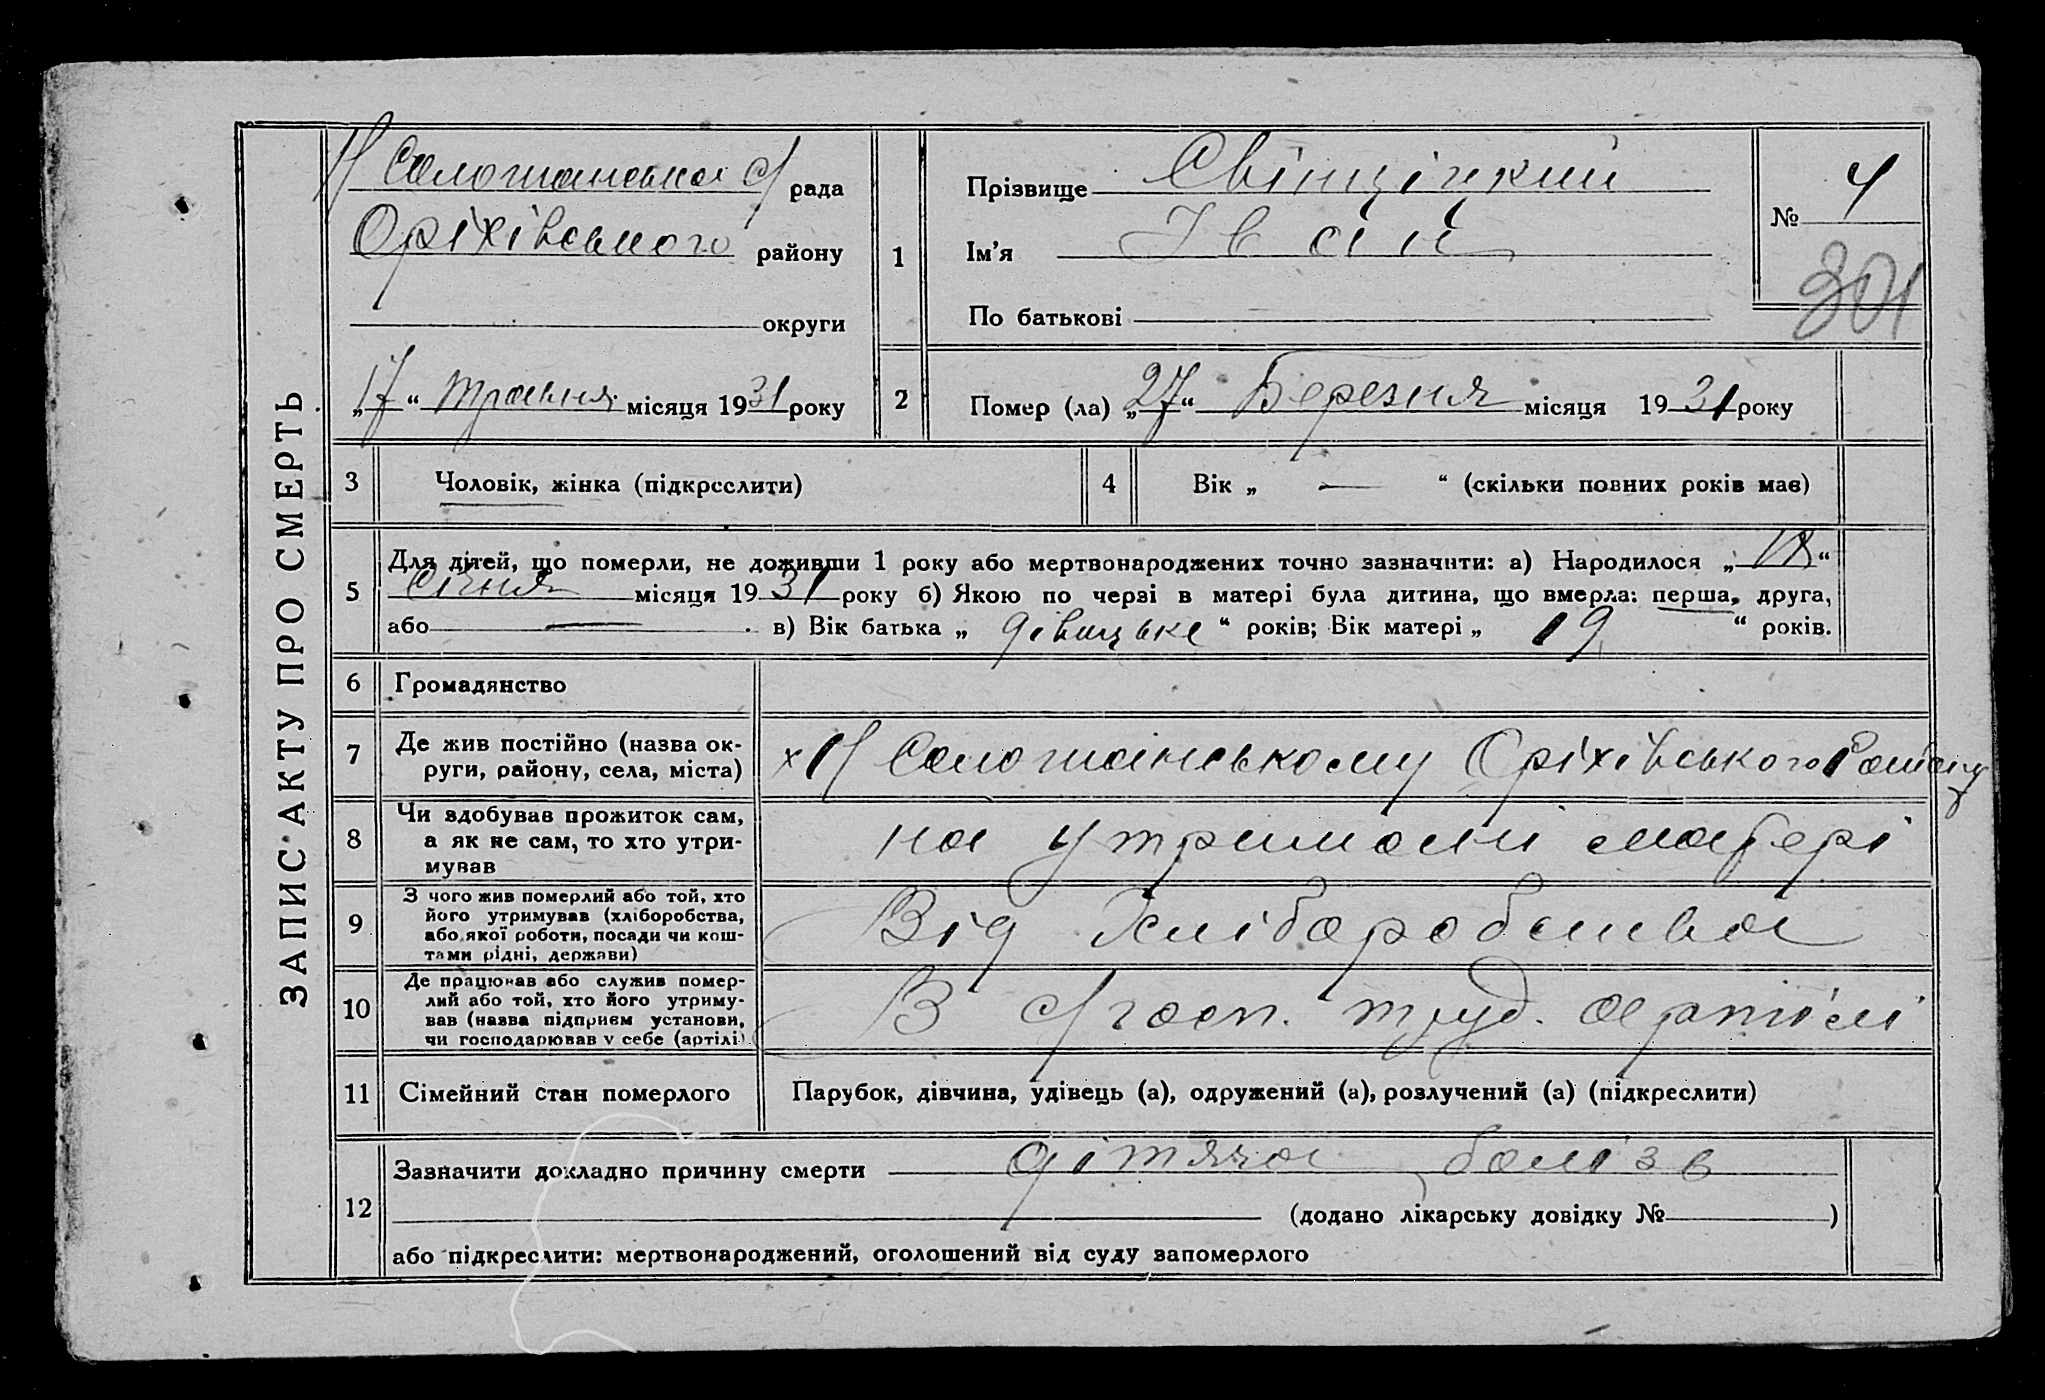 ЗАПИС АКТУ ПРО СМЕРТЬ
Н Солошанська с/рада
Оріхівського району
округи
„17“ травня місяця 1931 року
1
Прізвище Свінціцкий
Ім'я Іван
По батькові
№ 4
301
2
Помер (ла) „27“ Березня місяця 1931 року
3
Чоловік, жінка (підкреслити)
4
Вік „ — “ (скільки повних років має)
5
Для дітей, що померли, не доживши 1 року або мертвонароджених точно зазначити: а) Народилося „18“
Січня місяця 1931 року б) Якою по черзі в матері була дитина, що вмерла: перша, друга,
або — в) Вік батька „ дівицьке “ років; Вік матері „ 19 “ років.
6
Громадянство
7
Де жив постійно (назва ок-
руги, району, села, міста)
х Н Солошанському Оріхівського Району
8
Чи здобував прожиток сам,
а як не сам, то хто утри-
мував
на утримані матері
9
З чого жив померлий або той, хто
його утримував (хліборобства,
або якої роботи, посади чи кош-
тами рідні, держави)
Від Хліборобства
10
Де працював або служив помер-
лий або той, хто його утриму-
вав (назва підприєм установи,
чи господарював у себе (артілі)
В с/госп. труд. артілі
11
Сімейний стан померлого
Парубок, дівчина, удівець (а), одружений (а), розлучений (а) (підкреслити)
12
Зазначити докладно причину смерти дітяча болізв
(додано лікарську довідку № )
або підкреслити: мертвонароджений, оголошений від суду запомерлого